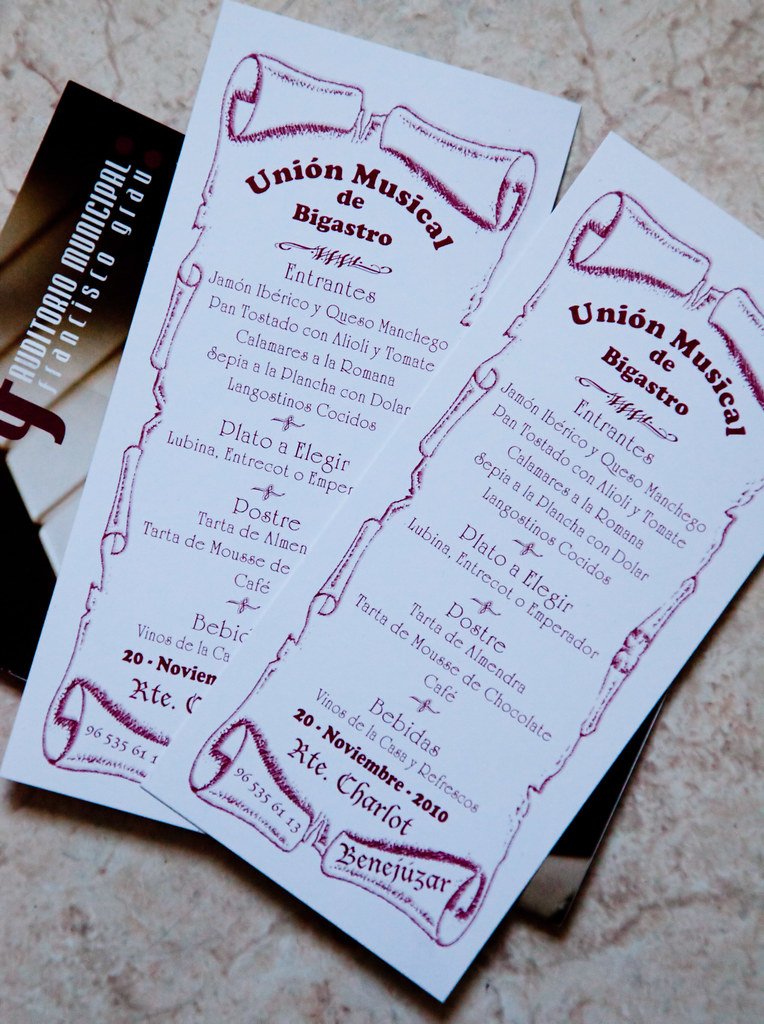 AUDITORIO MUNICIPAL
francisco grau
Unión Musical
de
Bigastro
Entrantes
Jamón Ibérico y Queso Manchego
Pan Tostado con Alioli y Tomate
Calamares a la Romana
Sepia a la Plancha con Dolar
Langostinos Cocidos
Plato a Elegir
Lubina, Entrecot o Emper
Postre
Tarta de Almen
Tarta de Mousse de
Café
Bebidas
Vinos de la Ca
20 - Noviem
Rte. C
96 535 61 1
Unión Musical
de
Bigastro
Entrantes
Jamón Ibérico y Queso Manchego
Pan Tostado con Alioli y Tomate
Calamares a la Romana
Sepia a la Plancha con Dolar
Langostinos Cocidos
Plato a Elegir
Lubina, Entrecot o Emperador
Postre
Tarta de Almendra
Tarta de Mousse de Chocolate
Café
Bebidas
Vinos de la Casa y Refrescos
20 - Noviembre - 2010
Rte. Charlot
96 535 61 13
Benejúzar